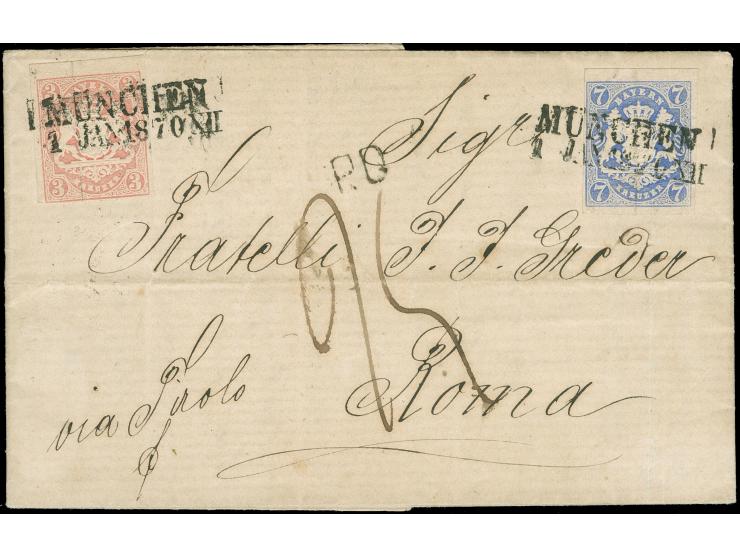 3 3
MÜNCHEN
1 JAN 1870 XII
3 3
7 BAYERN 7
MÜNCHEN
1 JAN XII
7 KREUZER 7
Sigri
P.D
Fratelli J. J. Greder
Roma
via Tirolo